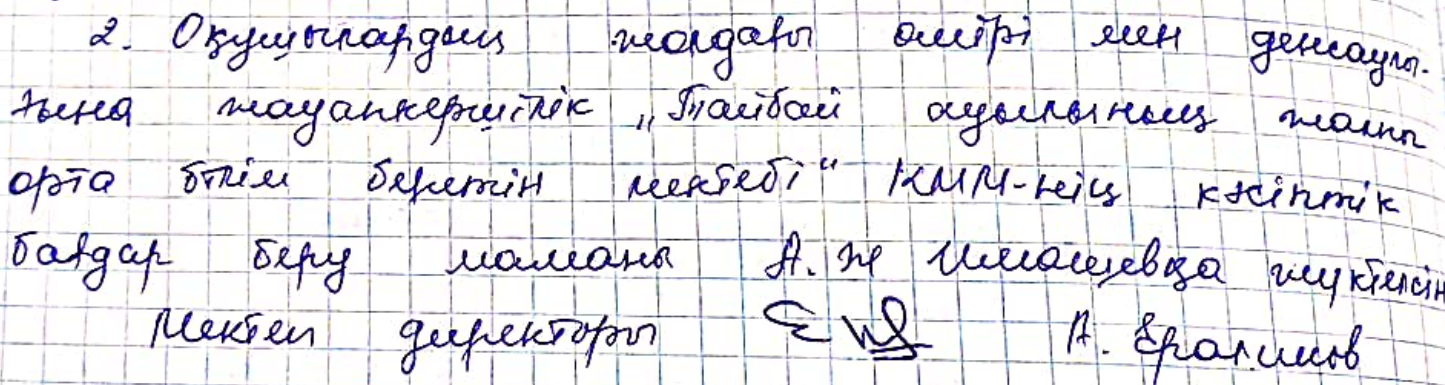 2. Оқушылардың жолдағы өмірі мен денсаулы-
ғына жауапкершілік „Тайбай ауылының жалпы
орта білім беретін мектебі“ КММ-нің кәсіптік
бағдар беру маманы А. Ж Имашевқа жүктелсін
Мектеп директоры А. Ералимов